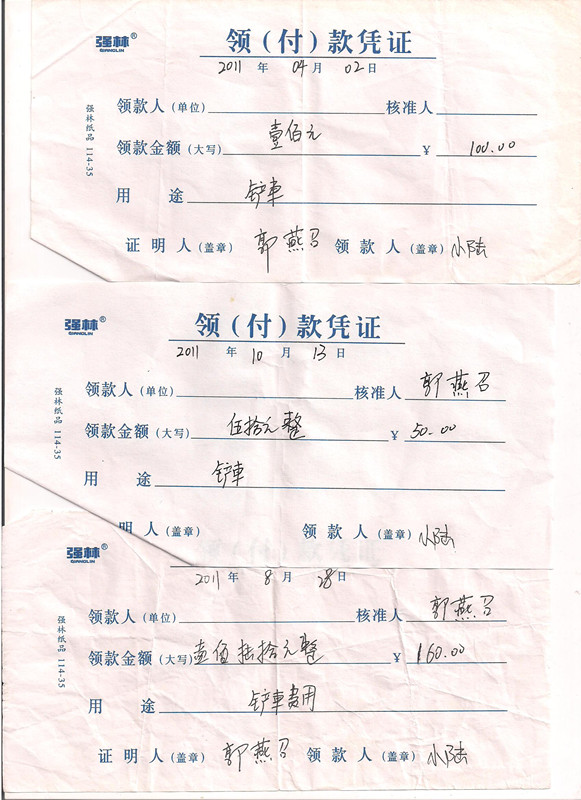 强林® QIANGLIN 领（付）款凭证
2011 年 04 月 02 日
强林纸品 114-35
领款人（单位） 核准人
领款金额（大写） 壹佰元 ¥ 100.00
用 途 铲車
证明人（盖章） 郭燕召 领款人（盖章） 小陆
强林® QIANGLIN 领（付）款凭证
2011 年 10 月 13 日
强林纸品 114-35
领款人（单位） 核准人 郭燕召
领款金额（大写） 伍拾元整 ¥ 50.00
用 途 铲車
明人（盖章） 领款人（盖章） 小陆
强林® QIANGLIN
2011 年 8 月 28 日
强林纸品 114-35
领款人（单位） 核准人 郭燕召
领款金额（大写） 壹佰陆拾元整 ¥ 160.00
用 途 铲車费用
证明人（盖章） 郭燕召 领款人（盖章） 小陆